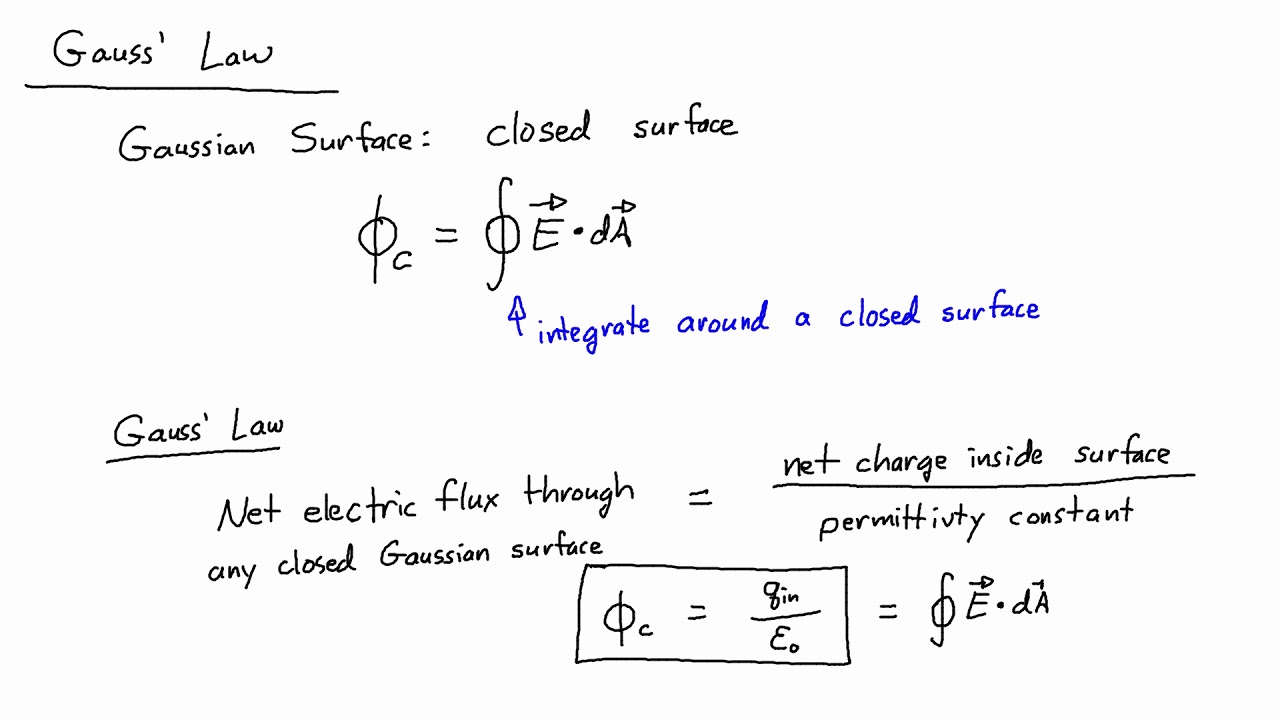 Gauss' Law
Gaussian Surface: closed surface
ϕc = ∮ E⃗ · dA⃗
integrate around a closed surface
Gauss' Law
Net electric flux through any closed Gaussian surface = net charge inside surface / permittivty constant
ϕc = qin / ε₀ = ∮ E⃗ · dA⃗